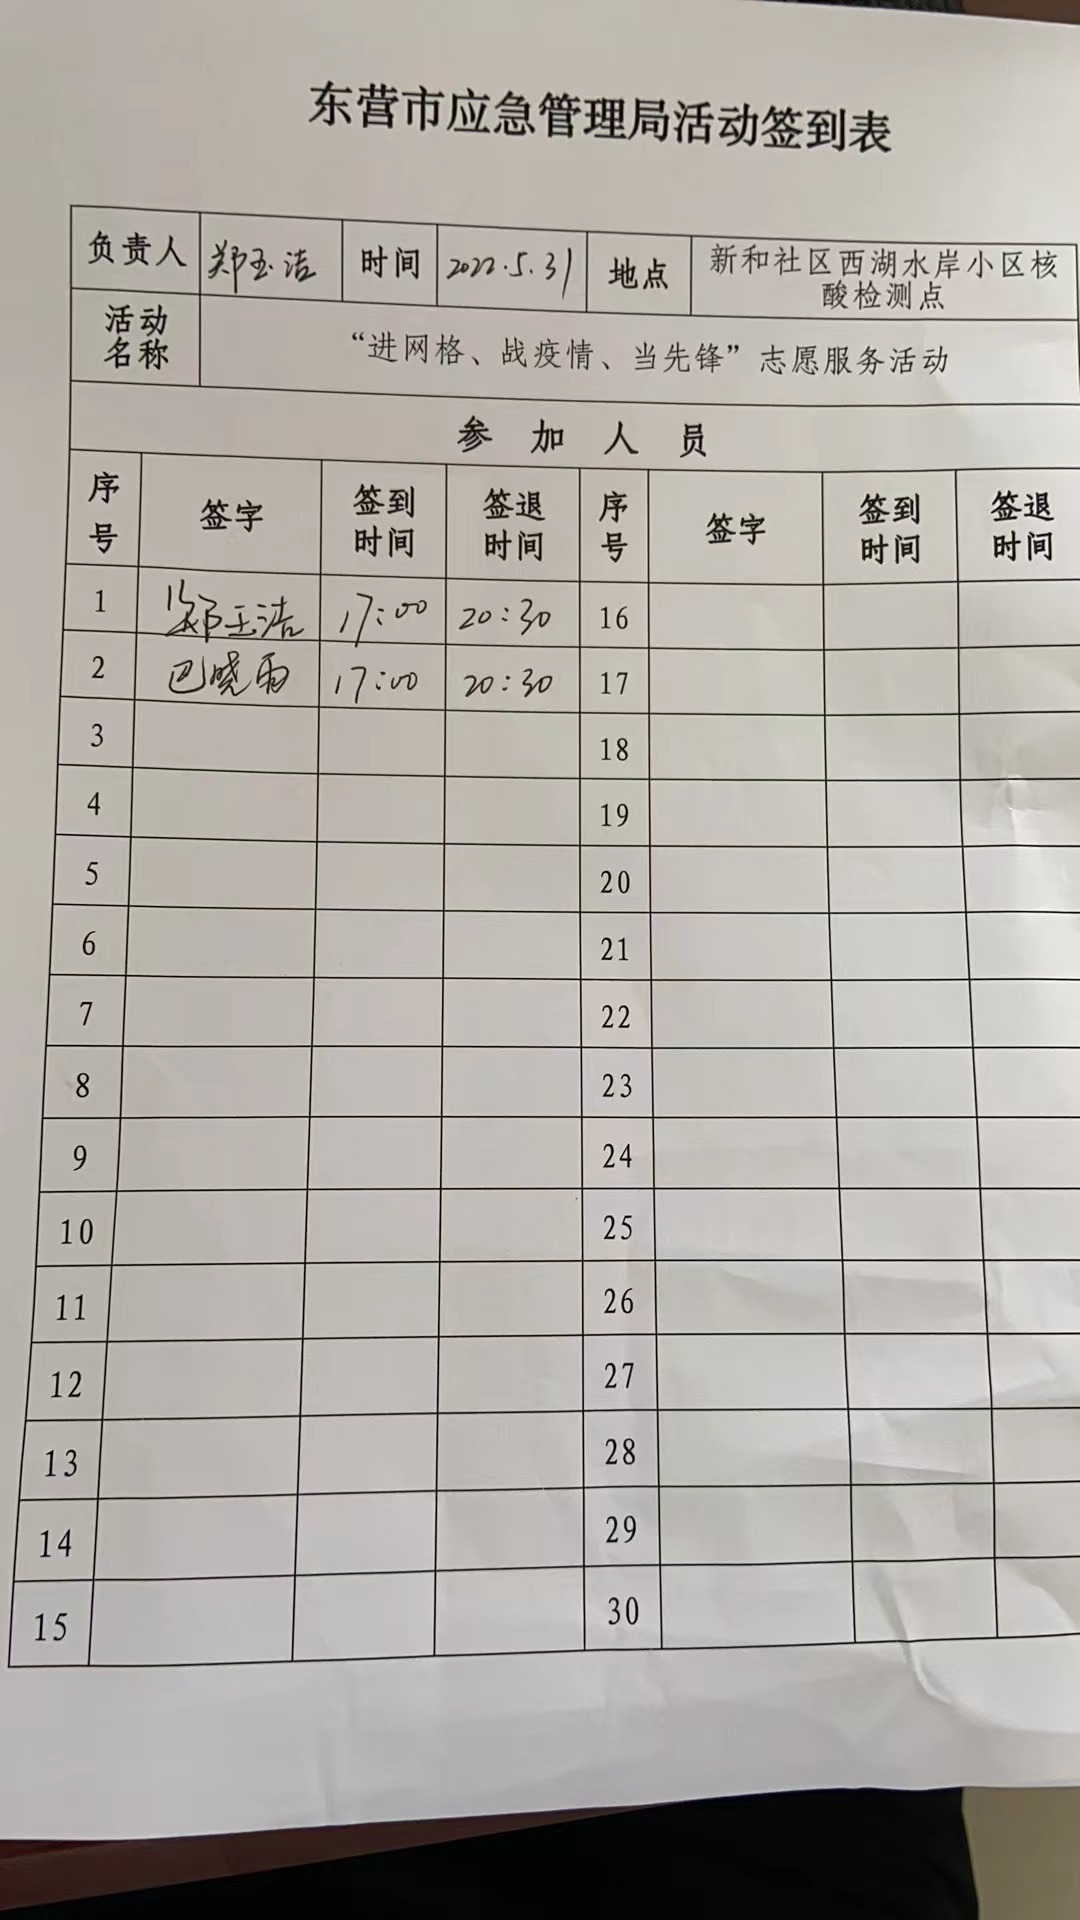 东营市应急管理局活动签到表
负责人 郑玉洁 时间 2022.5.31 地点 新和社区西湖水岸小区核
酸检测点
活动
名称 “进网格、战疫情、当先锋”志愿服务活动
参加人员
序号 签字 签到时间 签退时间 序号 签字 签到时间 签退时间
1 郑玉洁 17:00 20:30 16
2 巴晓雨 17:00 20:30 17
3 18
4 19
5 20
6 21
7 22
8 23
9 24
10 25
11 26
12 27
13 28
14 29
15 30